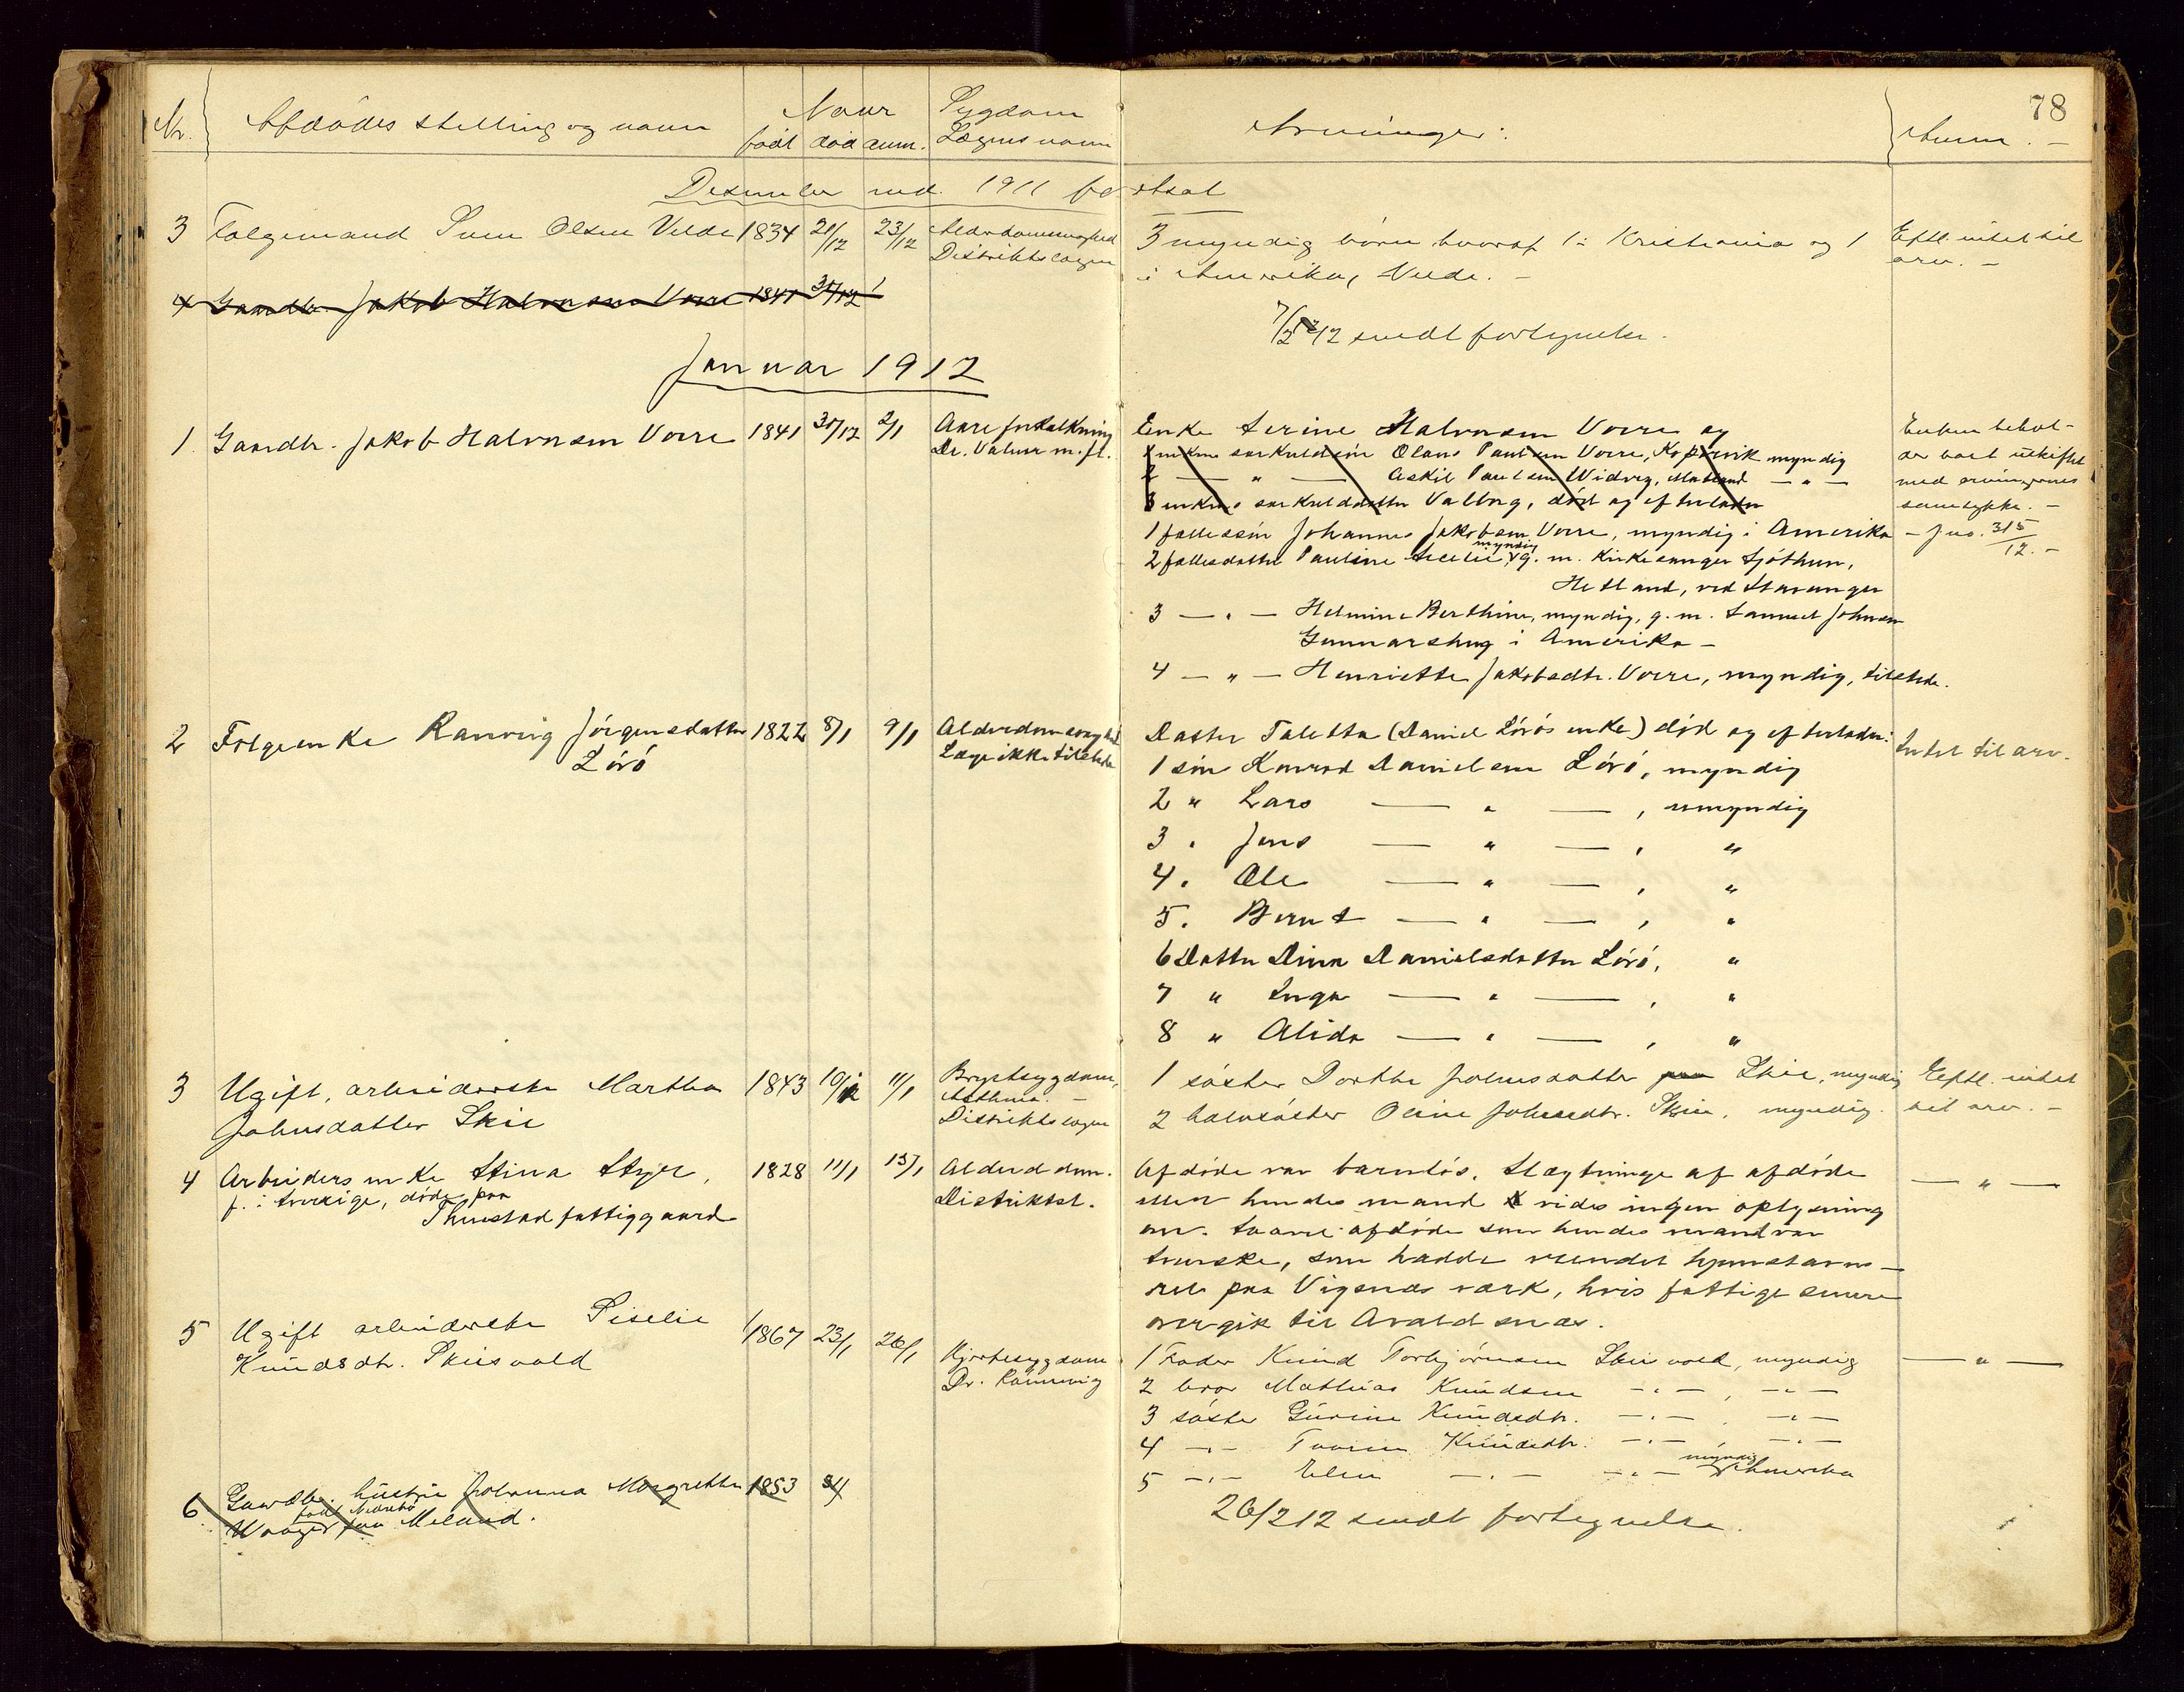 78
Nr. Afdödes stilling og navn Naar Sygdom Arvinger: Anm. -
født död anm. Lægens navn
Desember md. 1911 fortsat
3 Folgemand Sven Olsen Velde 1834 20/12 23/12 Alderdomssvaghed 3 myndig börn hvoraf 1 i Kristiania og 1 Eftl. intet til
Distriktslægen i Amerika, Velde. - arv. -
4 Gaardbr. Jakob Halvorsen Vorre 1841 31/12
7/2 12 sendt fortegnelse.
Januar 1912
1. Gaardbr. Jakob Halvorsen Vorre 1841 31/12 2/1 Aareforkalkning Enke Serine Halvorsen Vorre og Enken behol-
Dr. Valeur m. fl. 1 enkens særkuldsön Olaus Paulsen Vorre, Kopervik myndig der boet uskiftet
2 — " — Askil Paulsen Widvey, — " — med arvingernes
3 enkens særkulddatter Valborg, död og efterlader samtykke. -
1 fællessön Johannes Jakobsen Vorre, myndig i Amerika - Jno. 315/12. -
2 fællesdatter Pauline Secelie, myndig g. m. Kirkesanger Sjöthun,
Hetland, ved Stavanger
3 — " — Helmine Berthine, myndig, g. m. Samuel Johnsen
Gunnarshug i Amerika -
4 — " — Henriette Jakobsdtr. Vorre, myndig, tilstede.
2 Folgeenke Ranveig Jörgensdatter 1822 8/1 9/1 Alderdomssvaghed Datter Taletta (Daniel Lörös enke) död og efterlader: Intet til arv.
Lörö Læge ikke tilstede 1 sön Konrad Danielsen Lörö, myndig
2 " Lars — " — , umyndig
3 " Jens — " — , "
4 " Ole — " — , "
5 " Bernt — " — , "
6 Datter Dina Danielsdatter Lörö, "
7 " Inga — " — , "
8 " Alida — " — , "
3 Ugift, arbeiderske Martha 1843 10/1 11/1 Brystsygdom, 1 söster Dorthe Johnsdatter Skie, myndig Eftl. intet
Johnsdatter Skie Asthma. - 2 halvsöster Oline Johnsdtr. Skie, myndig. til arv. -
Distriktslægen
4 Arbeiders enke Stina Styer, 1828 11/1 15/1 Alderddom. Afdöde var barnlös. Slægtninge af afdöde — " —
f. i Sverige, döde paa Distriktsl. eller hendes mand vides ingen oplysning
Thustad fattiggaard om. Saavel afdöde som hendes mand var
svenske, som hadde vundet hjemstavns-
ret paa Vigsnæs værk, hvis fattige senere
overgik til Avaldsnæs.
5 Ugift arbeiderske Siselie 1867 23/1 26/1 Hjertesygdom 1 Fader Knud Torbjörnsen Skeisvold, myndig — " —
Knudsdtr. Skeisvold Dr. Rönnevig 2 bror Mathias Knudsen — " — , — " —
3 söster Gurine Knudsdtr. — " — , — " —
4 — " — Knudsdtr. — " — , — " —
5 — " — Elen — " — — " — myndig Amerika
6 Gaardbr. hustru Johanna Margrethe 1853
26/2 12 sendt fortegnelse.